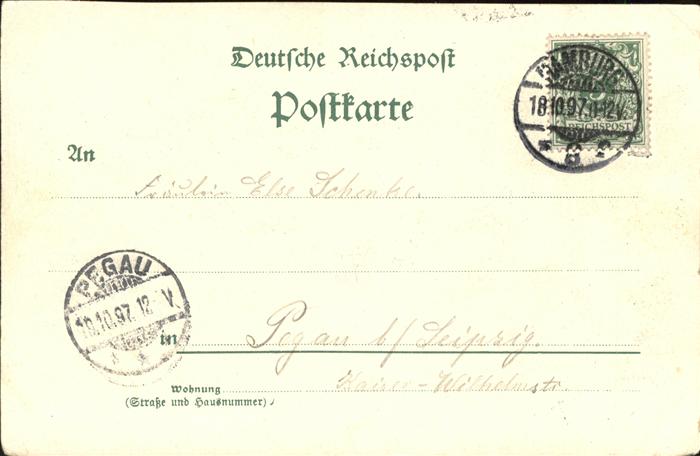 Deutsche Reichspost
Postkarte
HAMBURG
18.10.97.11-12V.
REICHSPOST
* 8 c
An
Fräulein Else Schenke.
PEGAU
19.10.97. 12 V.
in Pegau b/ Leipzig.
Wohnung
(Straße und Hausnummer)
Kaiser-Wilhelmstr.